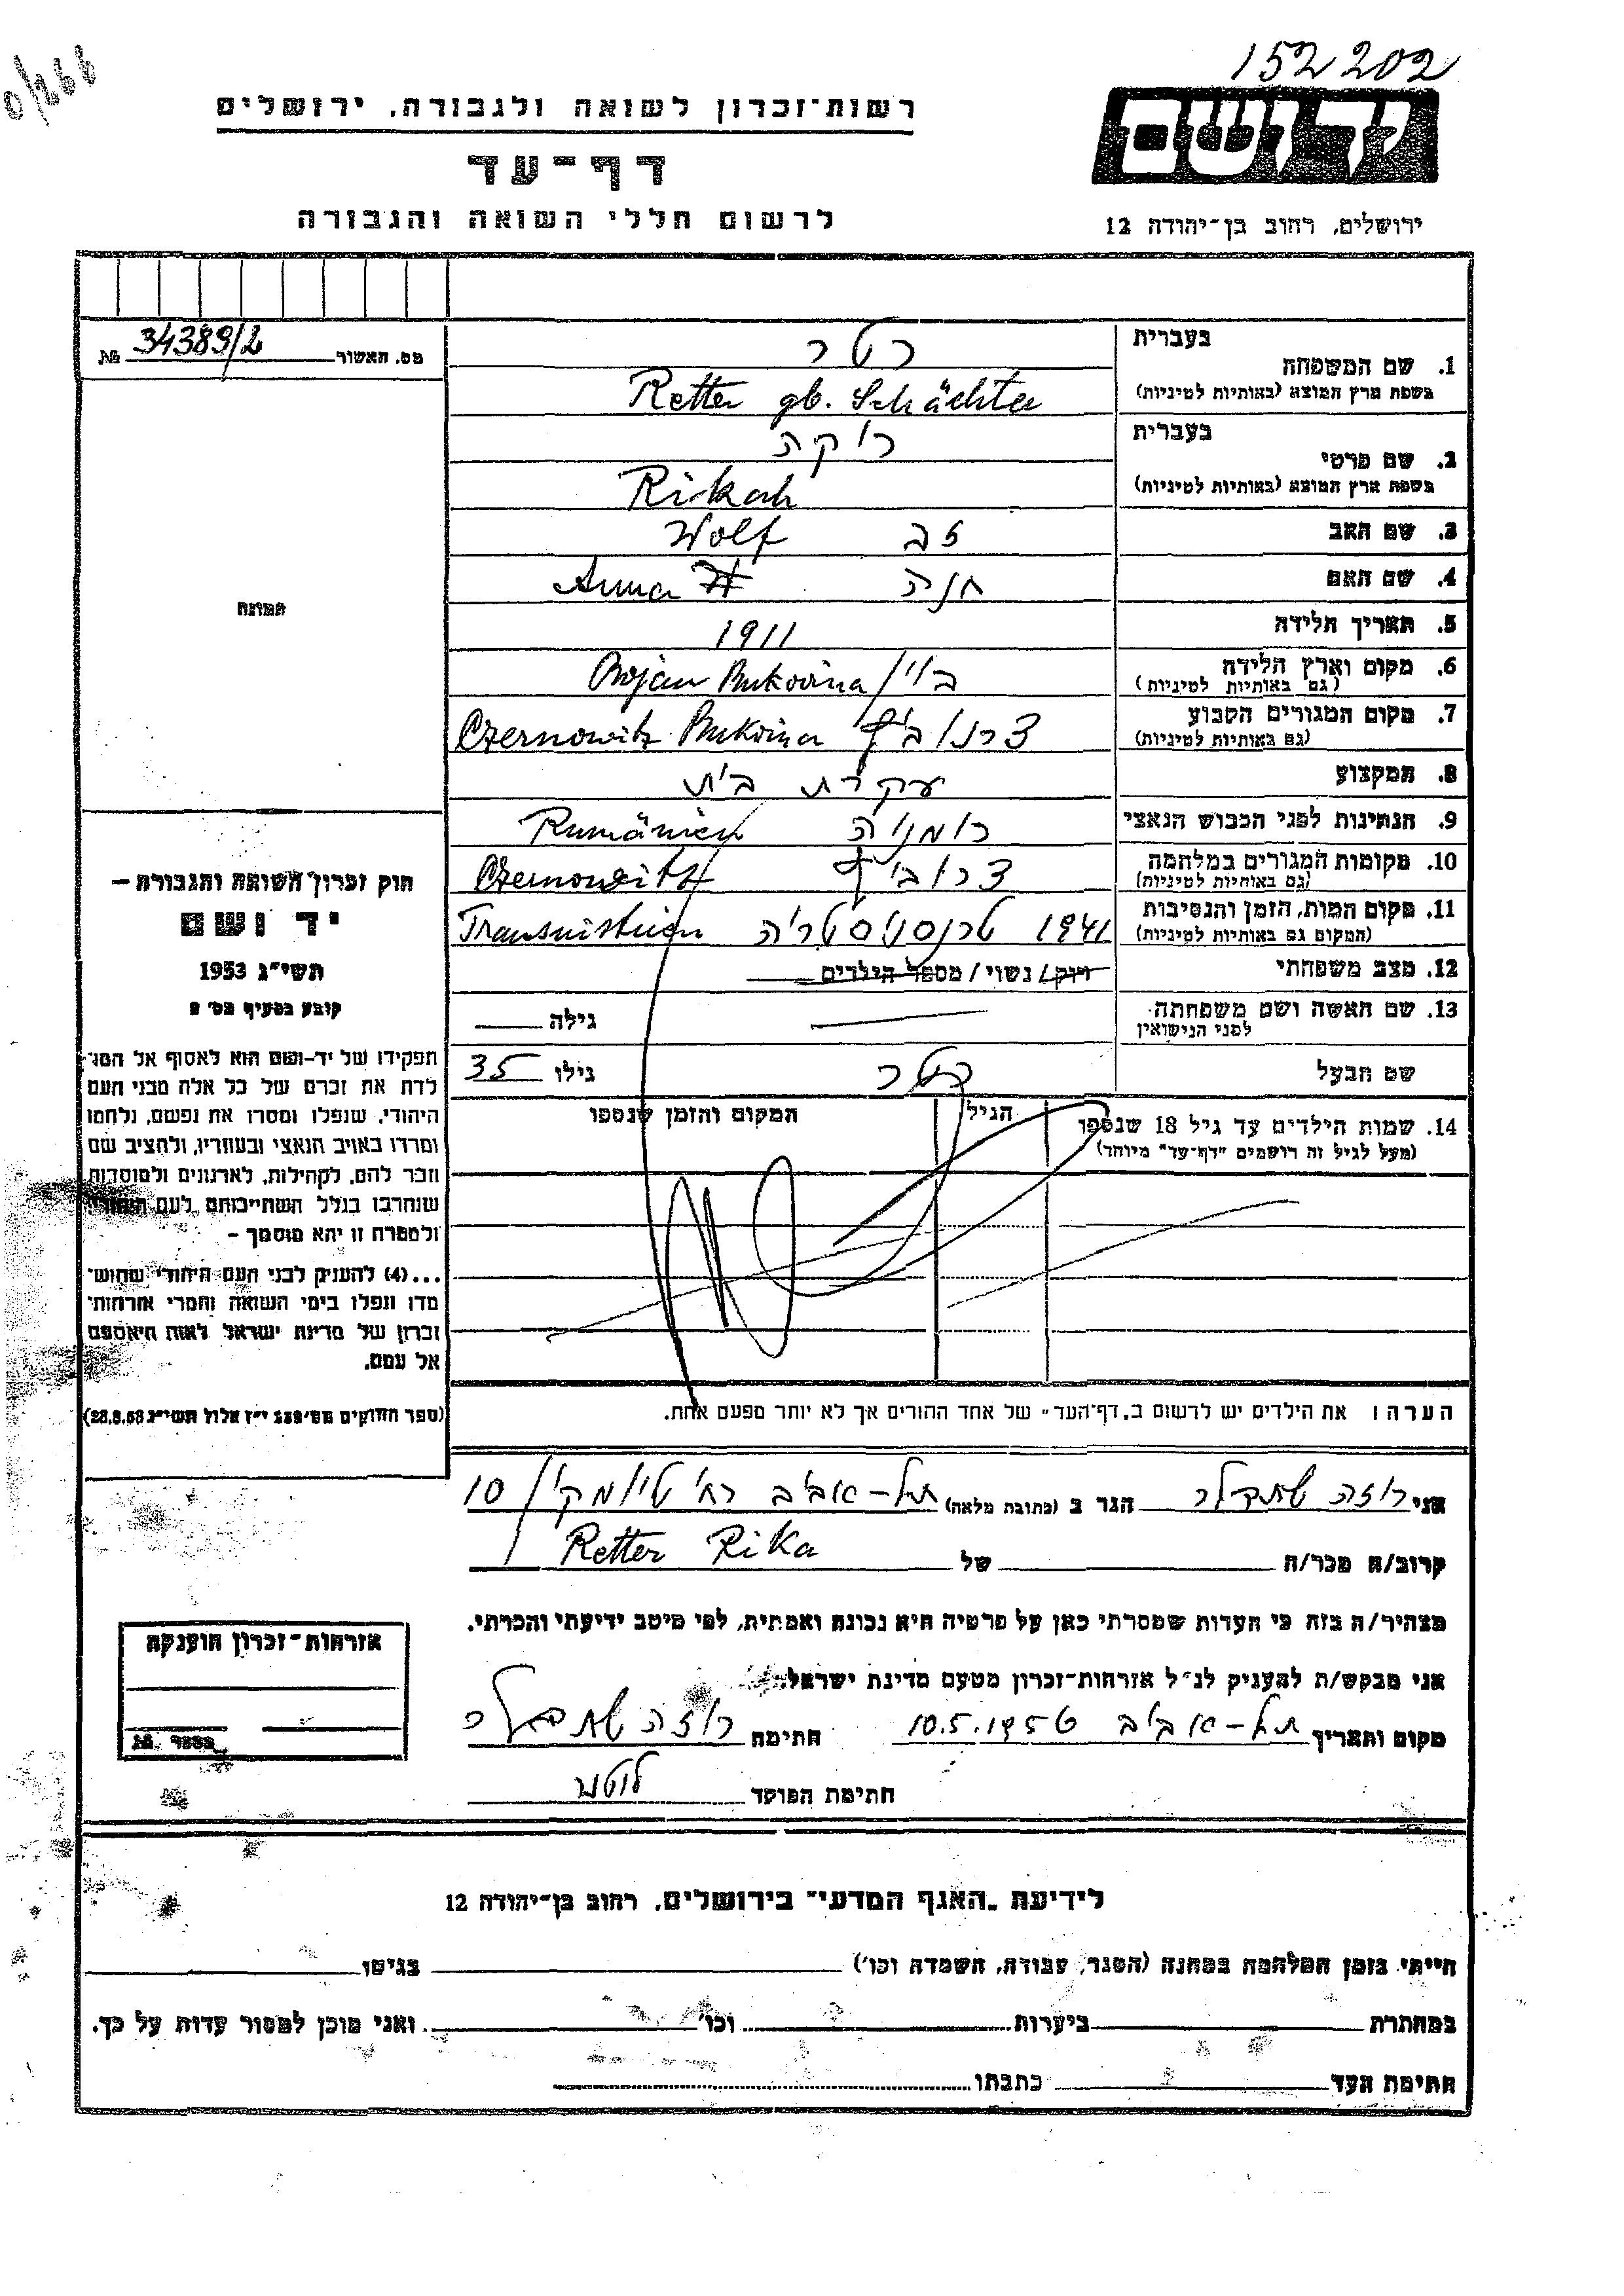 152202
0/266
יד ושם
רשות-זכרון לשואה ולגבורה, ירושלים
דף-עד
לרשום חללי השואה והגבורה
ירושלים, רחוב בן-יהודה 12
מס. האשור 34389/2 №
בעברית רטר
1. שם המשפחה
בשפת ארץ המוצא (באותיות לטיניות) Retter gb. Schächter
בעברית ריקה
2. שם פרטי
בשפת ארץ המוצא (באותיות לטיניות) Rikah
3. שם האב זב Wolf
4. שם האם חנה Anna
5. תאריך הלידה 1911
6. מקום וארץ הלידה בוין Bojan Bukovina
(גם באותיות לטיניות)
7. מקום המגורים הקבוע צרנוביץ Czernowitz Bukovina
(גם באותיות לטיניות)
8. המקצוע עקרת בית
9. הנתינות לפני הכבוש הנאצי רומניה Rumänien
10. מקומות המגורים במלחמה צרנוביץ Czernowitz
(גם באותיות לטיניות)
11. מקום המות, הזמן והנסיבות 1941 טרנסניסטריה Transnistrien
(המקום גם באותיות לטיניות)
12. מצב משפחתי רווק / נשוי / מספר הילדים
13. שם האשה ושם משפחתה גילה
לפני הנישואין
שם הבעל רטר גילו 35
14. שמות הילדים עד גיל 18 שנספו הגיל המקום והזמן שנספו
(מעל לגיל זה רושמים "דף-עד" מיוחד)
הערה: את הילדים יש לרשום ב"דף-העד" של אחד ההורים אך לא יותר מפעם אחת.
תמונה
חוק זכרון השואה והגבורה –
יד ושם
תשי"ג 1953
קובע בסעיף מס' 2
תפקידו של יד-ושם הוא לאסוף אל המו־
לדת את זכרם של כל אלה מבני העם
היהודי, שנפלו ומסרו את נפשם, נלחמו
ומרדו באויב הנאצי ובעוזריו, ולהציב שם
וזכר להם, לקהילות, לארגונים ולמוסדות
שנחרבו בגלל השתייכותם לעם היהודי
ולמטרה זו יהא מוסמך –
...(4) להעניק לבני העם היהודי שהוש־
מדו ונפלו בימי השואה והמרי אזרחות־
זכרון של מדינת ישראל לאות היאספם
אל עמם.
(ספר החוקים מס' 132 י"ז אלול תשי"ג 28.8.53)
אני רוזה הגר ב (כתובת מלאה) תל-אביב רח' 10
קרוב/ה מכר/ה של Retter Rika
מצהיר/ה בזה כי העדות שמסרתי כאן על פרטיה היא נכונה ואמתית, לפי מיטב ידיעתי והכרתי.
אני מבקש/ת להעניק לנ"ל אזרחות-זכרון מטעם מדינת ישראל.
מקום ותאריך תל-אביב 10.5.1956 חתימה רוזה
חתימת הפוקד
אזרחות-זכרון הוענקה
מספר №
לידיעת "האגף המדעי" בירושלים, רחוב בן-יהודה 12
הייתי בזמן המלחמה במחנה (הסגר, עבודה, השמדה וכו') בגיטו
במחתרת ביערות וכו' ואני מוכן למסור עדות על כך.
חתימת העד כתבתו